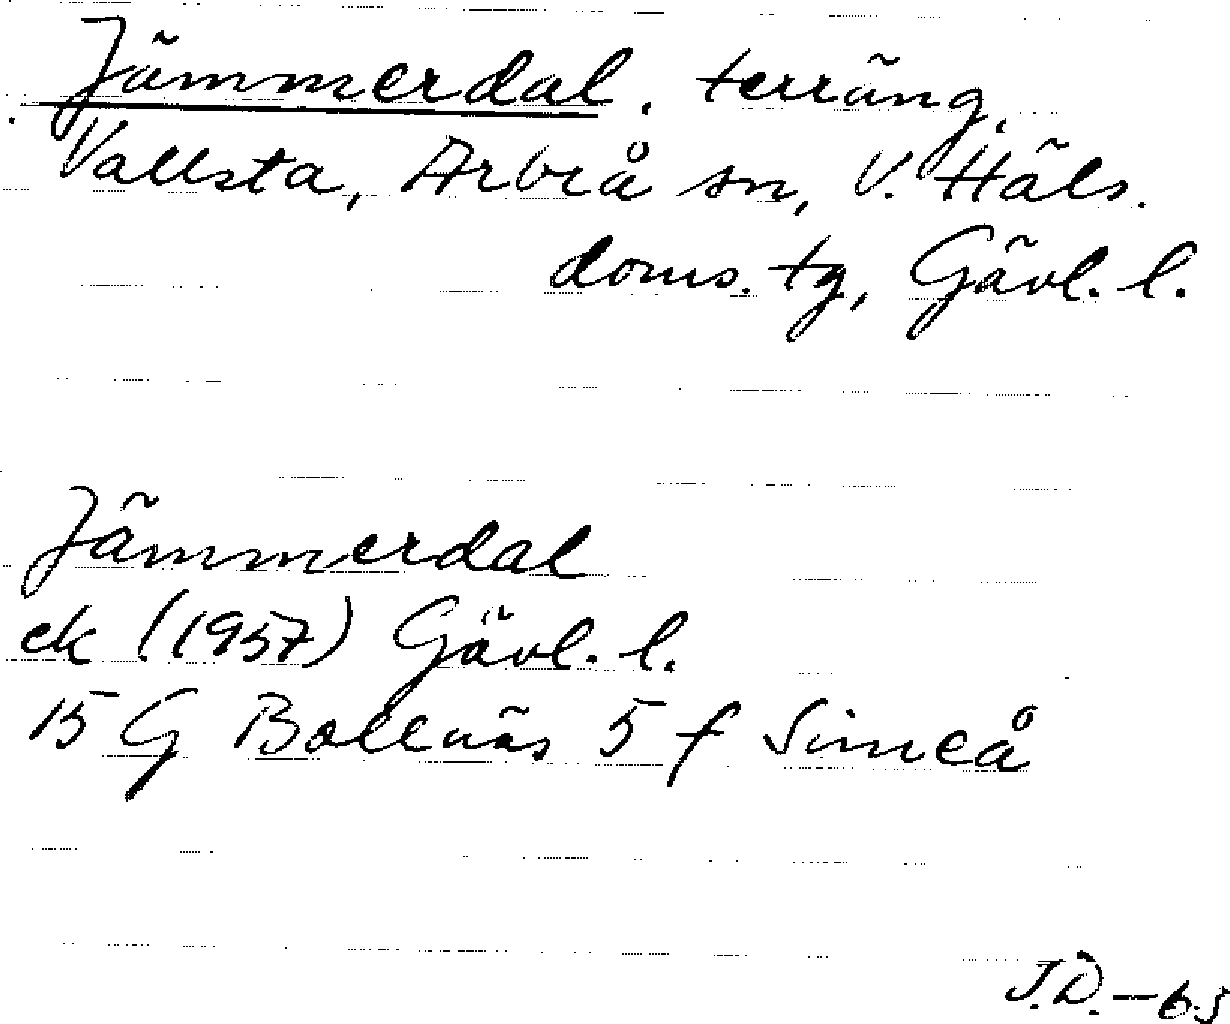 Jämmerdal, terräng,
Vallsta, Arbrå sn, V. Häls.
doms. tg, Gävl. l.
Jämmerdal
ek (1957) Gävl. l.
15 G Bollnäs 5 f Simeå
J.D. — 65